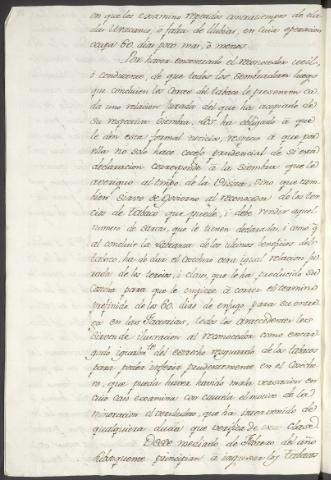 en qual es examina reguedos contratiempos de ela-
das Uracanes, o falta de lluvias, en cuia operacion
ocupa 60. dias poco mas, o menos.
Por haver encontrado el reconocedor util,
i conducente, de que todos los sembradores luego
que concluien los Cortes de tabaco le presenten ca-
da uno relacion jurada del que ha acopiado de
su respectiva siembra, les ha obligado à que
le den esta formal noticia, respecto à que por
ella no solo hace cotejo prudencial de si esta
declaracion corresponde à la siembra que le
averiguo al tiempo de la Visita, sino que tam-
bien sirve de Govierno al reconocedor de los ter-
cios de tabaco que puede, i debe rendir aquel
numero de sartas, que le tienen declaradas, i como q.
al concluir la labranza de los ultimos beneficios del
tabaco, ha de dar el Cosechero otra igual relacion ju-
rada de los tercios, i clase, que le ha producido su
Cosecha para que le empieze à correr el termino
prefinido de los 60. dias de enjugo para su entre-
ga en las Factorias, todos los antecedentes les
sirven de ilustracion al reconocedor como encar-
gado igualm.te del estrecho resguardo de los tabacos
para poder inferir prudentemente en el Coseche-
ro, que pueda haver havido mala versacion en
cuio caso examina con cautela el motivo de la
minoracion el verdadero, que ha intervenido de
qualquiera duda que verifica de esa clase.
Desde mediado de Febrero del año
subsequente principian à los tabacos